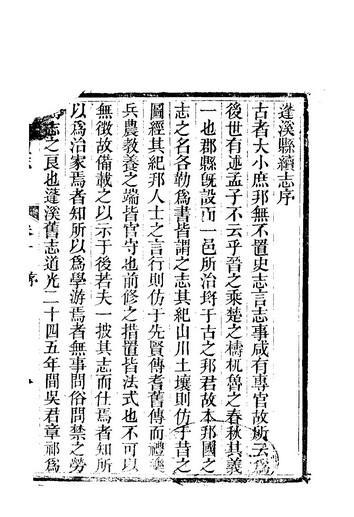 蓬溪縣續志序
古者大小庶邦無不置史志言志事咸有專官故所云爲
後世有述孟子不云乎晉之乘楚之檮杌魯之春秋其義
一也郡縣旣設而一邑所治埒于古之邦君故本邦國之
志之名各勒爲書皆謂之志其紀山川土壤則仿于昔之
圖經其紀邦人士之言行則仿于先賢傳耆舊傳而禮樂
兵農敎養之端皆官守也前修之措置皆法式也不可以
無徵故備載之以示于後若夫一披其志而仕焉者知所
以爲治家焉者知所以爲學游焉者無事問俗問禁之勞
志之良也蓬溪舊志道光二十四五年間吳君章祁爲
序